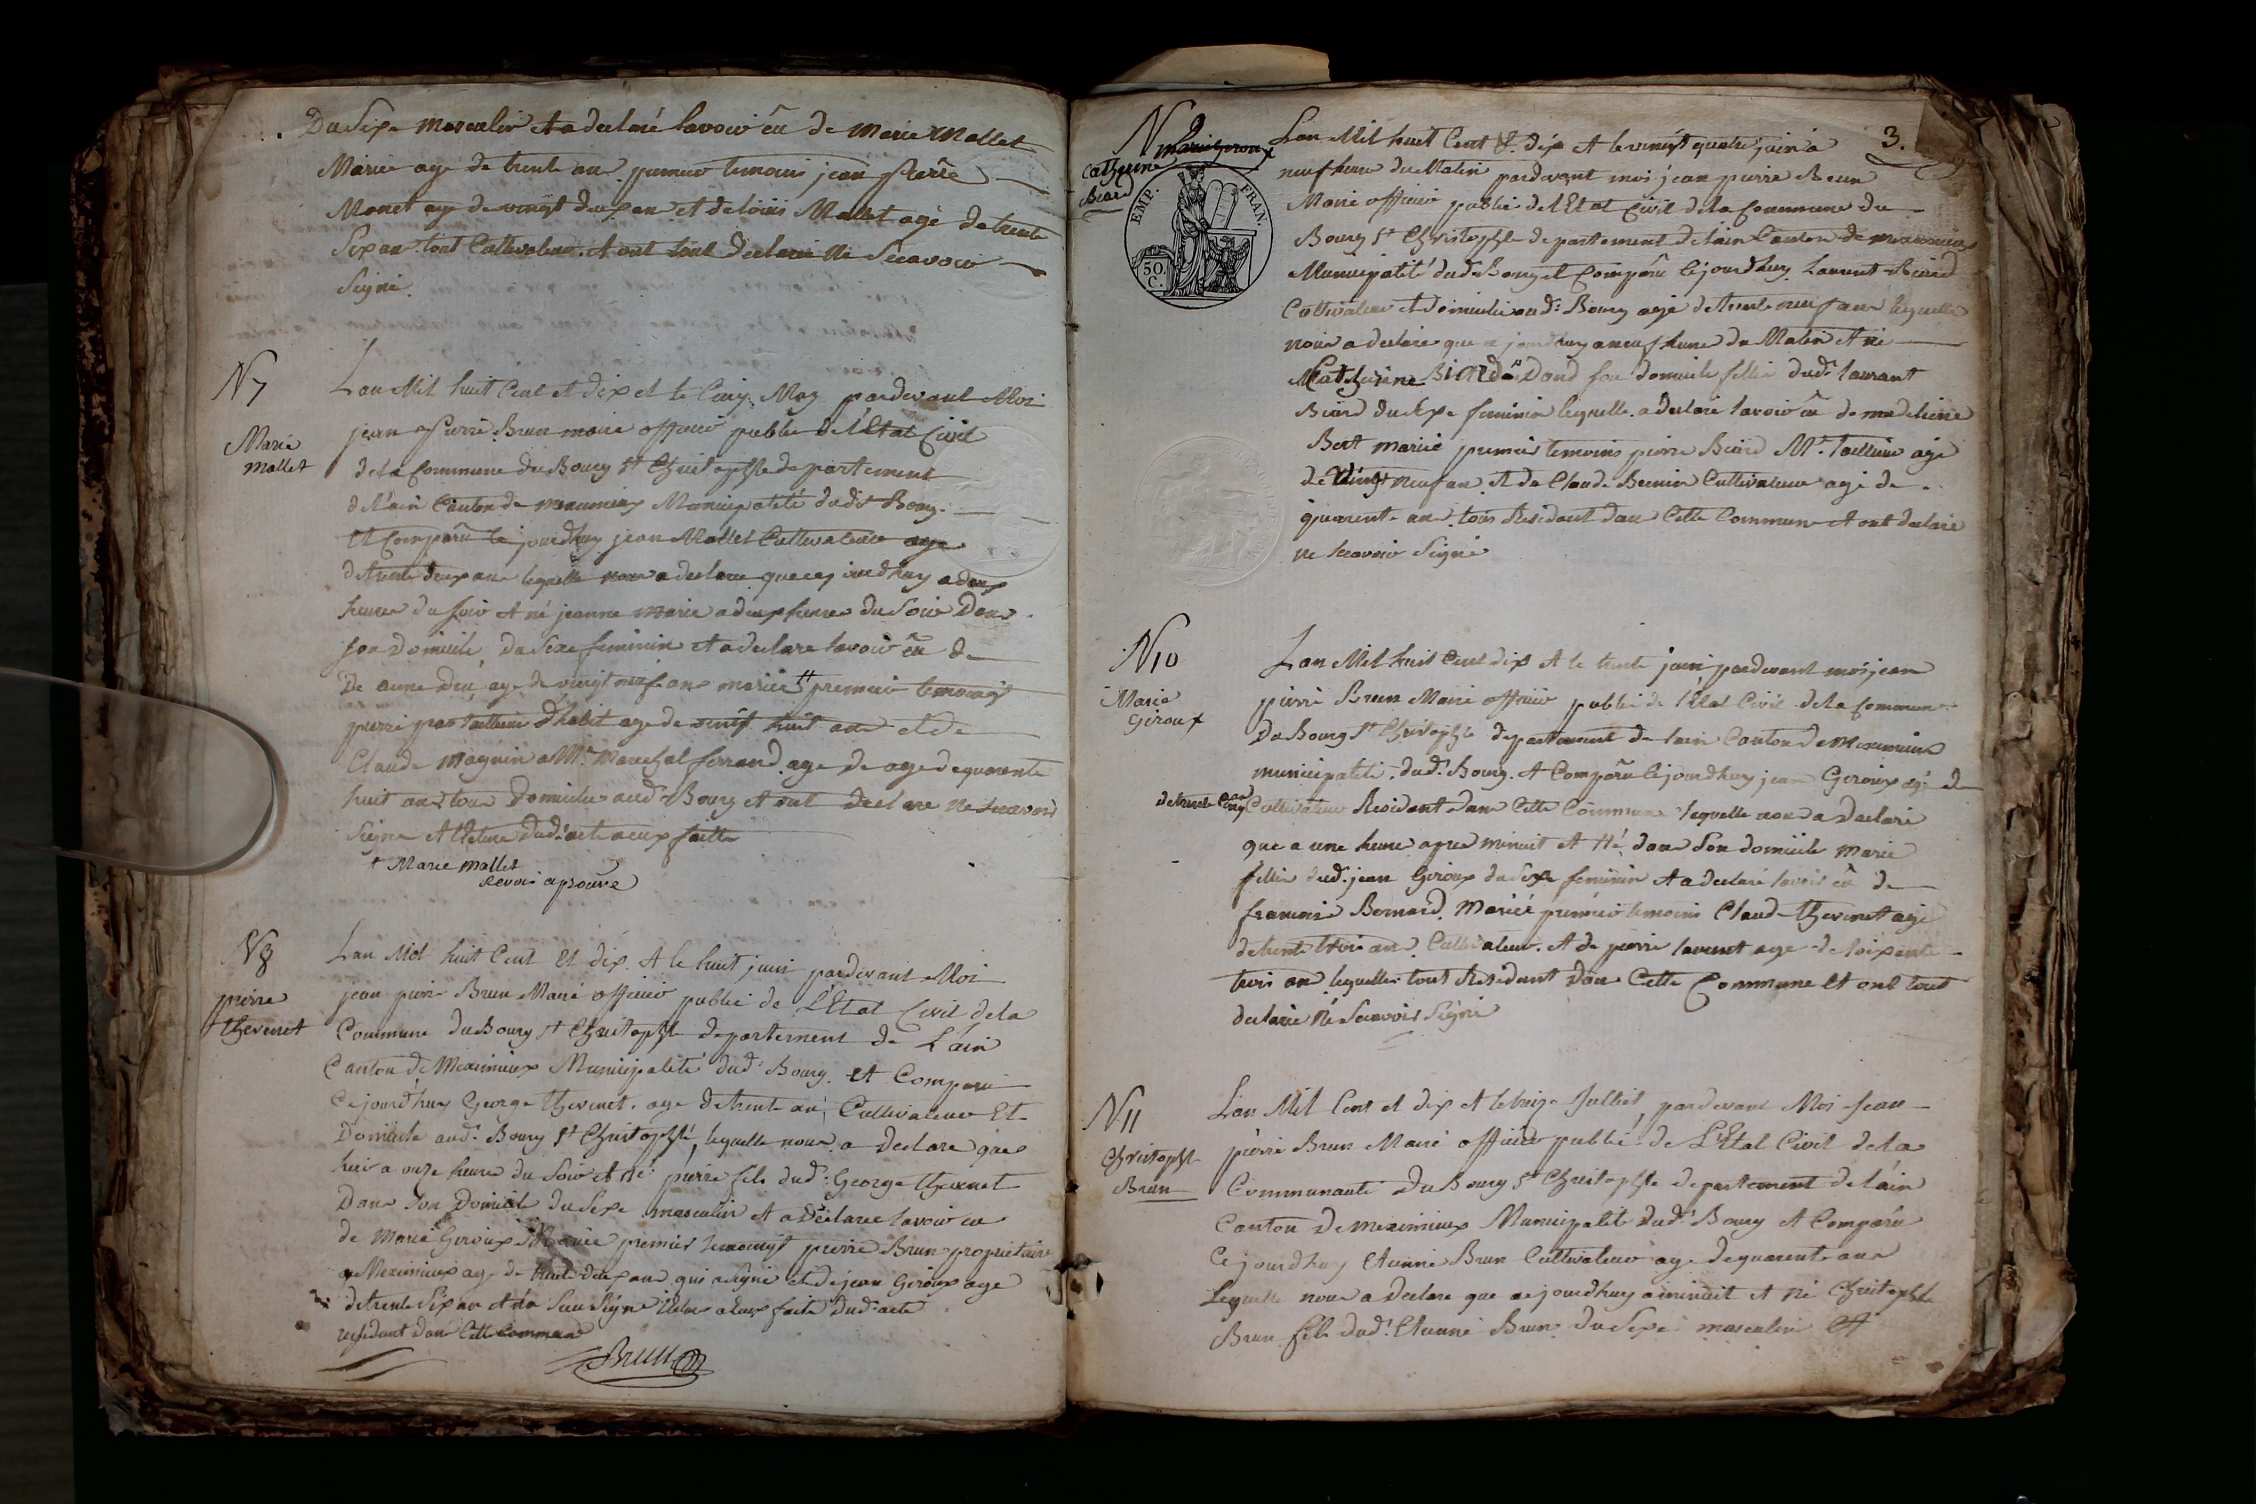 Du Sexe masculin et a declaré lavoir eu de marie Mallet
Mariée age de trente an premier temoins jean pierre
Monet age de vingt deux an et de louis Mallet agé de trente
Six an tout Cultivateur et ont tout declaree Ne Scavoir
Signé
N 7
Marie
Mallet
Lan Mil huit Cent et dix et le Cinq May pardevant Moi
jean pierre Brun maire officier public de l'Etat Civil
de la Commune du Bourg St Christophle departement
de lain Canton de meximieux Municipalité dudit Bourg
et Comparu le jourdhuy jean Mallet Cultivateur age
de trente deux ans lequelle nous a declare que cejourdhuy a deux
heures du soir et né jeanne marie a deux heures du Soir Dans
son Domicile du Sexe feminin et a declare lavoir eu de
De anne age de vingt neuf ans mariée # premier temoings
pierre tailleur d'habit age de vingt huit ans et de
Claude magnin Mtre marechal ferrand age de age de quarente
huit ans tous Domicilie aud. Bourg et ont declare Ne Scavoir
Signe et lecture dud. acte a eux faitte
+ Marie mallet
renvoi aprouvé
N 8
pierre
thevenet
Lan Mil huit Cent et dix et le huit juin pardevant Moi
jean pierre Brun Maire officier public de L'Etat Civil de la
Commune du Bourg St Christophle departement de L'ain
Canton de Meximieux Municipalité dud. Bourg et Comparu
Ce jourdhuy George thevenet age de trente an Cultivateur Et
Domicile aud. Bourg St Christophle, lequelle nous a declare que
hier a onze heure du Soir et né pierre fils dud. George thevenet
Dans Son Domicile du Sexe masculin et a declaree lavoir eu
de Marie Giroux Mariée premier temoingt pierre Brun proprietaire
a Meximieux age de trente deux ans qui a signe et de jean Giroux age
de trente Six an et na Seu Signe lecture a eux faite dud. acte
residant dans Cette Commune
Brun
3.
N 9
marie giroux
Catherine
Biard
EMP. FRAN.
50.
C.
Lan Mil huit Cent & dix et le vingt quatre juin à
neuf heure du Matin pardevant moi jean pierre Brun
Maire officier public de l'Etat Civil de la Commune du
Bourg St Christophle departement de lain Canton de meximieux
Municipalité dud. Bourg et Comparu le jourdhuy Laurent Biard
Cultivateur et domicilie aud. Bourg agé de trente neuf ans lequelle
nous a declaré que ce jourdhuy a neuf heure du Matin et né
Catherine Biard dans son domicile fille dud. laurant
Biard du Sexe feminin lequelle a declare lavoir eu de madeleine
Bert mariée premier temoins pierre Biard Mtre tailleur agé
de Vingt neuf an et de Claude Bernin Cultivateur agé de
quarente ans tous Residant dans Cette Commune et ont declare
ne Scavoir Signé
N 10
Marie
Giroux
Lan Mil huit Cent dix et le trente juin pardevant moi jean
pierre Brun Maire officier public de l'Etat Civil de la Commune
Du Bourg St Christophle departement de lain Canton de Meximieux
municipalité dud. Bourg et Comparu le jourdhuy jean Giroux agé de
de trente Cinq an Cultivateur Residant dans Cette Commune lequelle nous a declaré
que a une heure apres minuit et Né dans Son domicile marie
fille dud. jean Giroux du Sexe feminin et a declaré lavoir eu de
francoise Bernard Mariée premier temoins Claude thevenet agé
de trente trois ans Cultivateur et de pierre laurent age de soixente
trois an lequelle tout Residant dans Cette Commune Et ont tout
declarée Né Scavoir Signé
N 11
Christophle
Brun
L'an Mil Cent et dix et le treize Julliet pardevant Moi Jean
pierre Brun Maire officier public de L'Etat Civil de la
Communauté du Bourg St Christophle departement de lain
Canton De meximieux Municipalité dud. Bourg et Comparu
Ce jourdhuy Etienne Brun Cultivateur age de quarente ans
Lequelle nous a declare que ce jourdhuy a minuit et né Christophle
Brun fils dud. Etienne Brun du Sexe masculin et